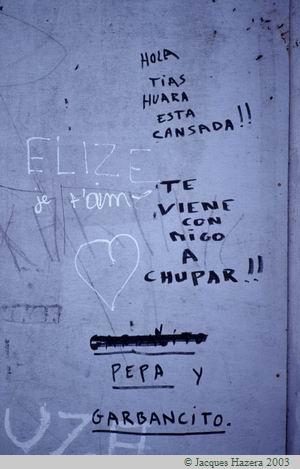 HOLA
TIAS
HUARA
ESTA
CANSADA!!
ELIZE
je t'aim
TE
VIENE
CON
MIGO
A
CHUPAR!!
PEPA y
GARBANCITO.
© Jacques Hazera 2003